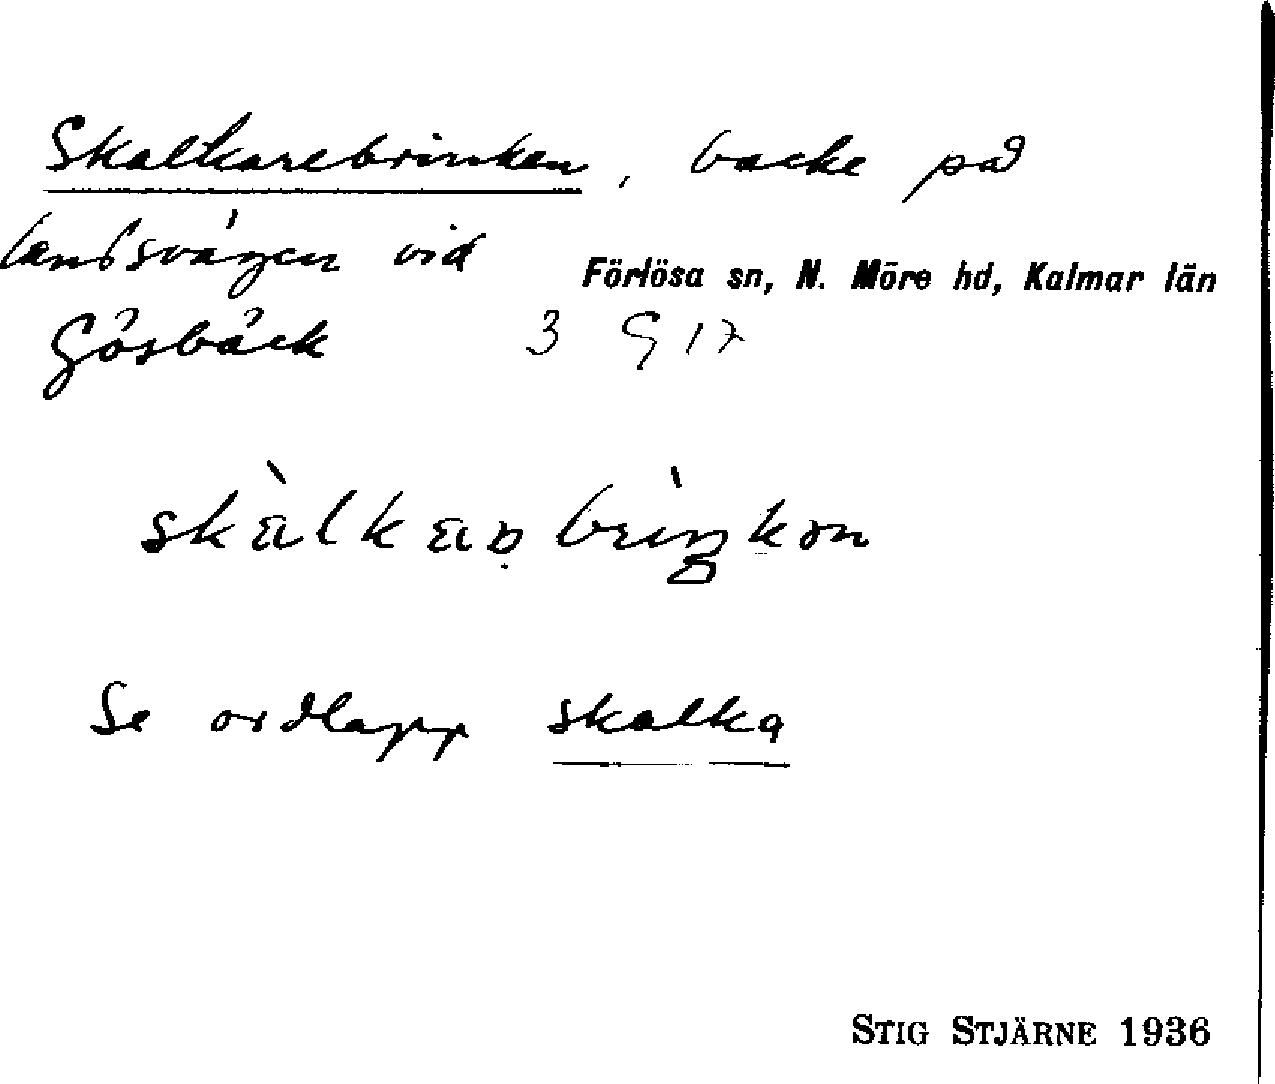 Skalkarebrinken, backe på
landsvägen vid
Förlösa sn, N. Möre hd, Kalmar län
Gösbäck 3 G 17
Se ordlapp skalka
STIG STJÄRNE 1936